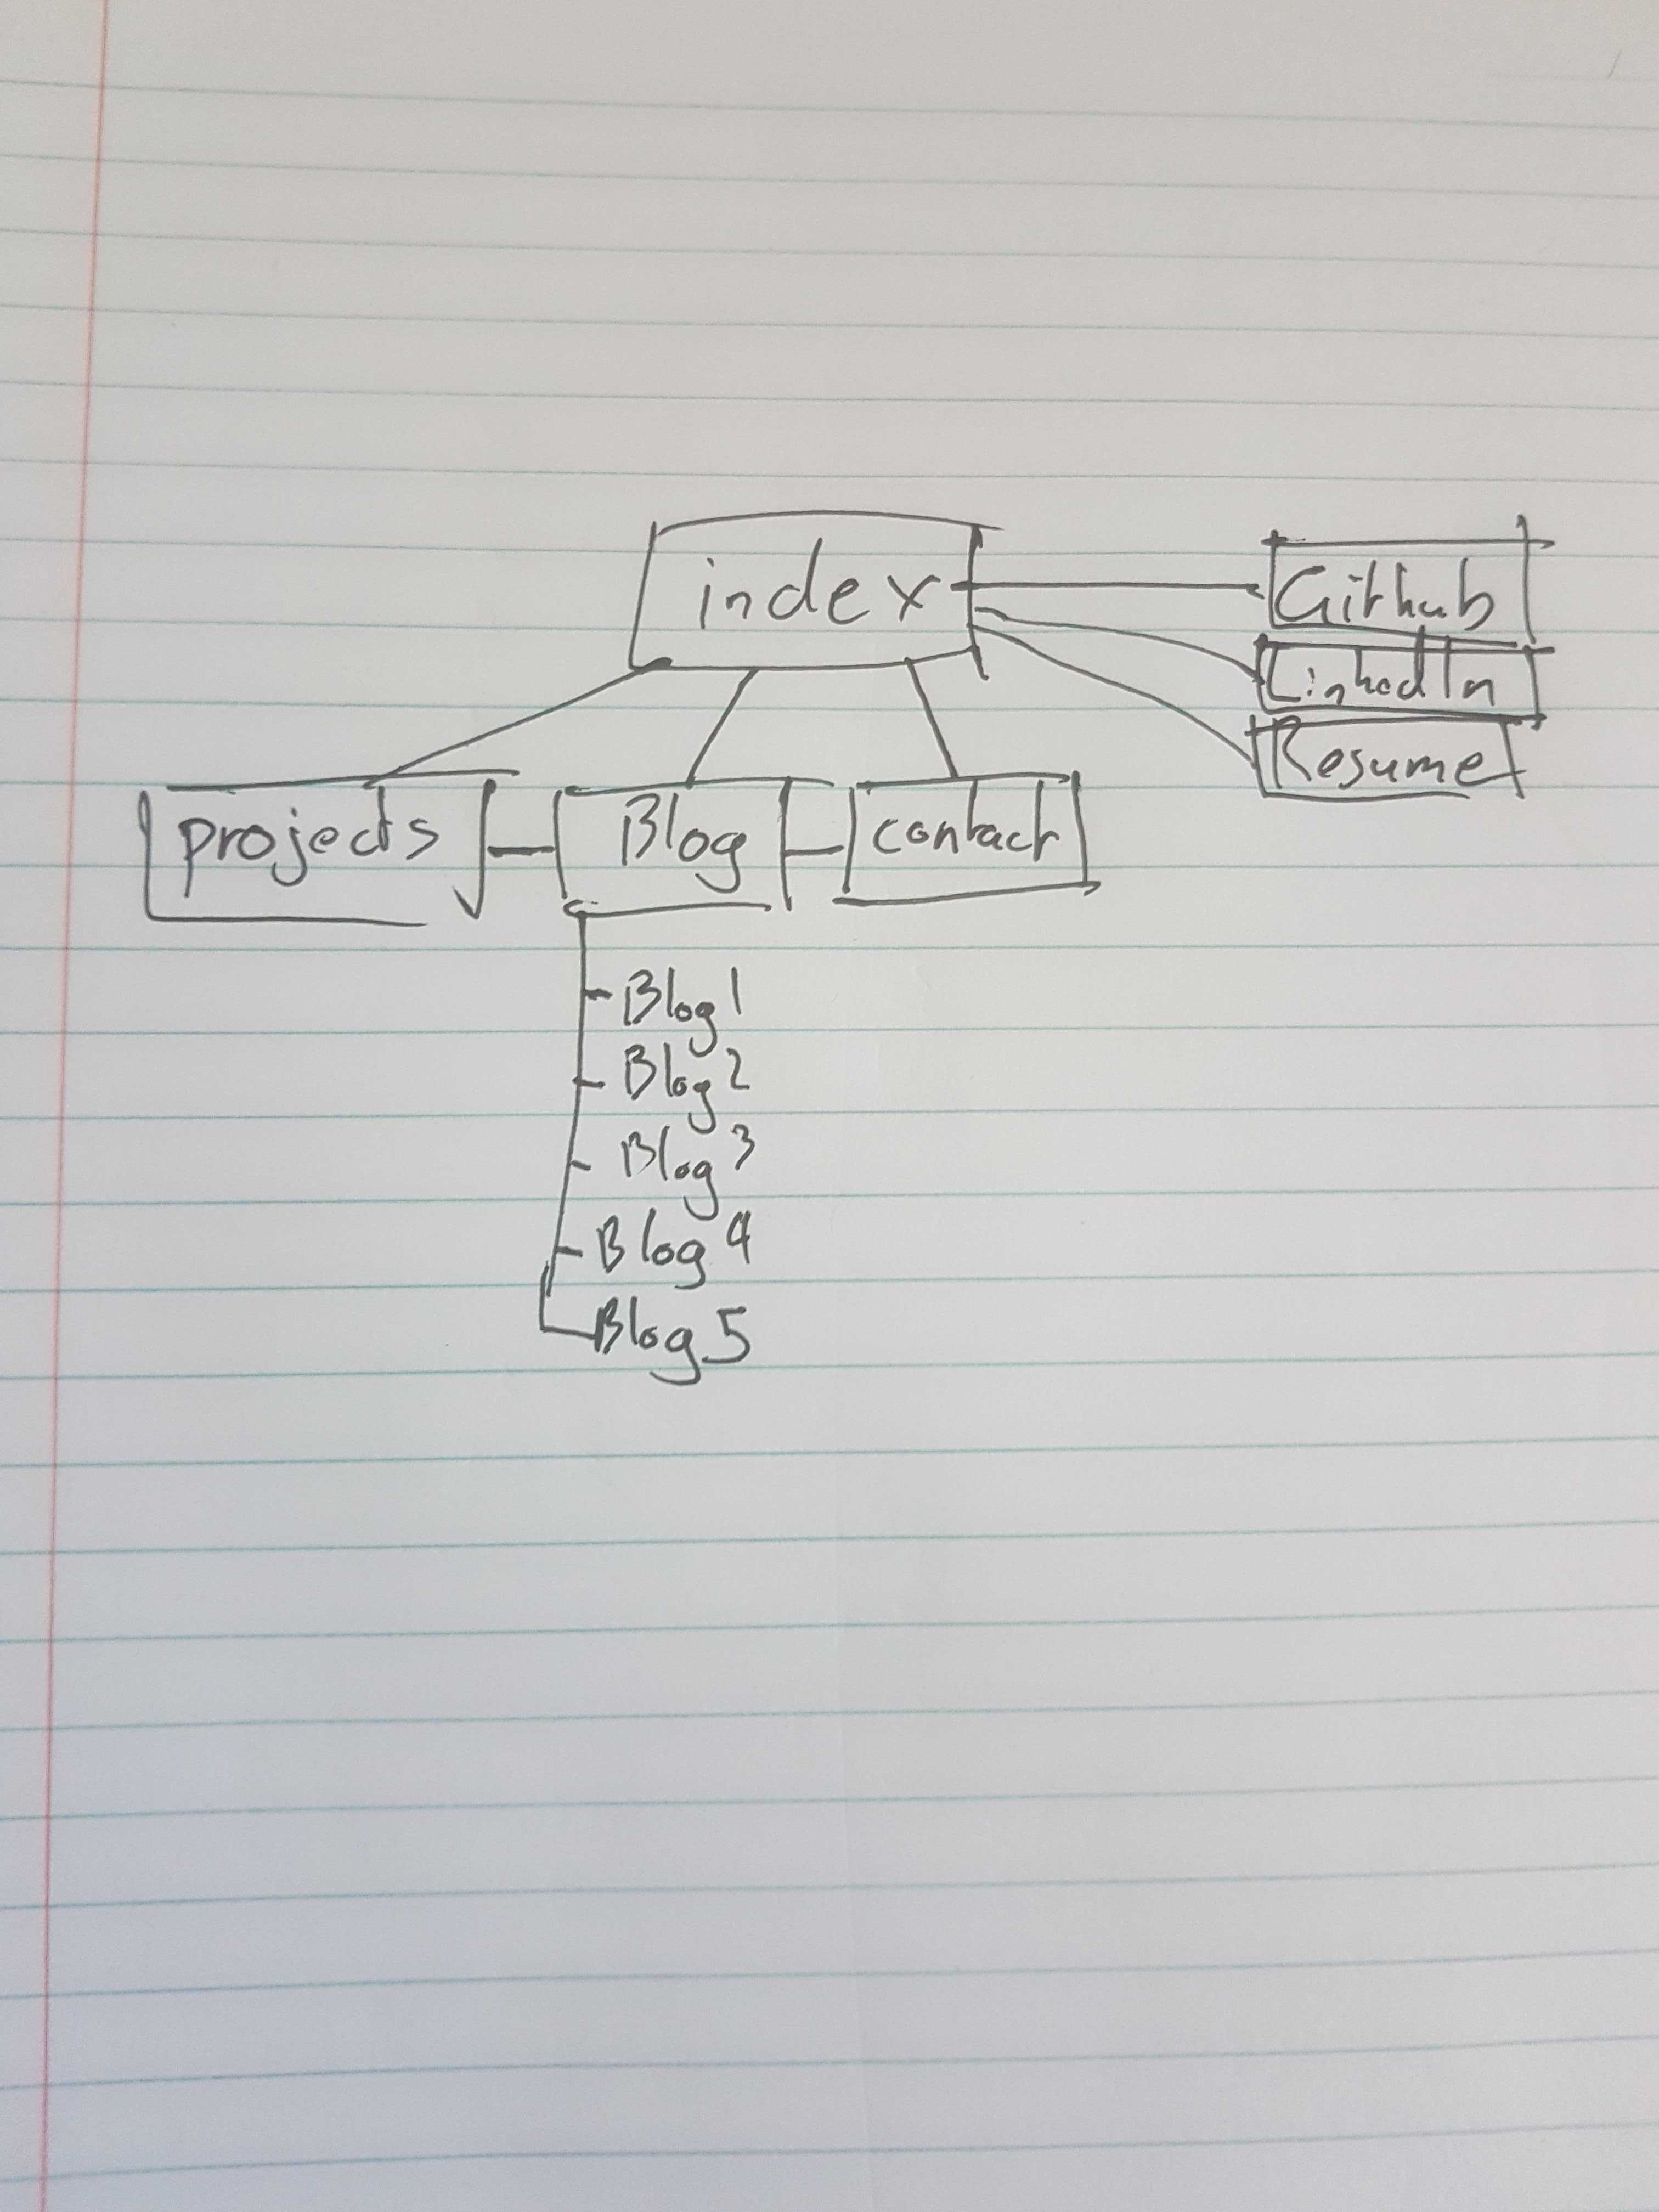 index
Github
LinkedIn
Resume
projects
Blog
contact
Blog 1
Blog 2
Blog 3
Blog 4
Blog 5